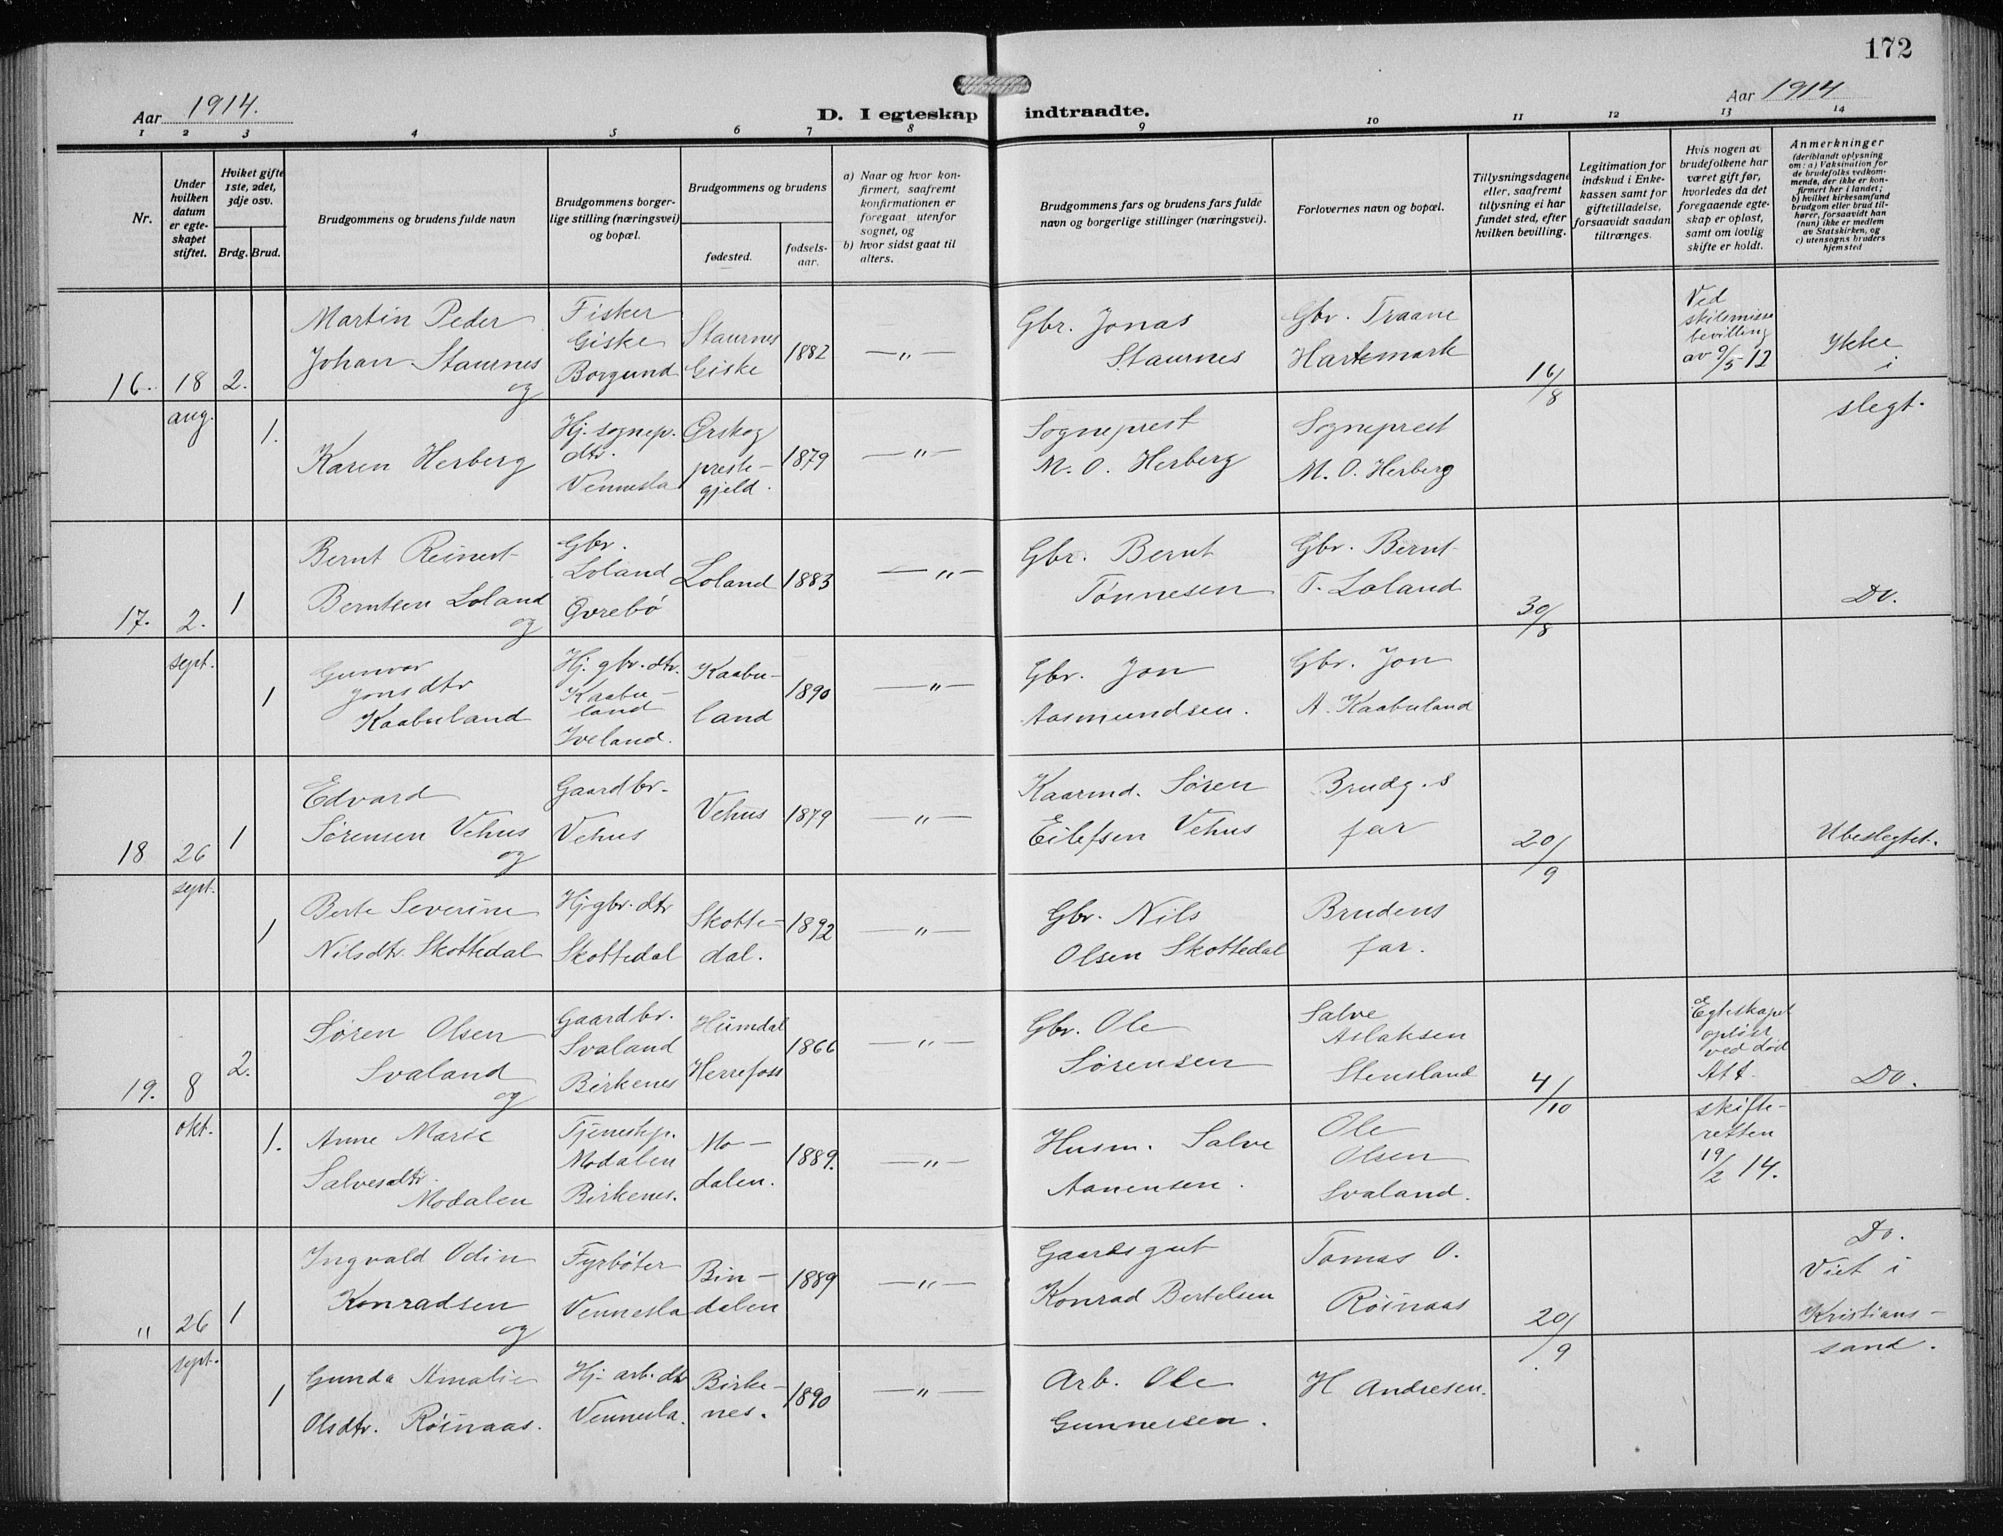 172
Aar 1914.
D. I egteskap indtraadte.
Aar 1914
1 2 3 4 5 6 7 8 9 10 11 12 13 14
Nr.
Under
hvilken
datum
er egte-
skapet
stiftet.
Hviket gifte
1ste, 2det,
3dje osv.
Brdg. Brud.
Brudgommens og brudens fulde navn
Brudgommens borger-
lige stilling (næringsvei)
og bopæl.
Brudgommens og brudens
fødested.
fødsels-
aar.
a) Naar og hvor kon-
firmert, saafremt
konfirmationen er
foregaat utenfor
sognet, og
b) hvor sidst gaat til
alters.
Brudgommens fars og brudens fars fulde
navn og borgerlige stillinger (næringsvei).
Forlovernes navn og bopæl.
Tillysningsdagene
eller, saafremt
tillysning ei har
fundet sted, efter
hvilken bevilling.
Legitimation for
indskud i Enke-
kassen samt for
giftetilladelse,
forsaavidt saadan
tiltrænges.
Hvis nogen av
brudefolkene har
været gift før,
hvorledes da det
foregaaende egte-
skap er opløst,
samt om lovlig
skifte er holdt.
Anmerkninger
(deriblandt oplysning
om: a) Vaksination for
de brudefolks vedkom-
mende, der ikke er kon-
firmert her i landet;
b) hvilket kirkesamfund
brudgom eller brud til-
hører, forsaavidt han
(hun) ikke er medlem
av Statskirken, og
c) utensogns bruders
hjemsted
16. 18 aug. 2.
Martin Peder
Johan Staurnes
og
Fisker
Giske
Borgund
Staurnes
Giske
1882
— " —
Gbr. Jonas
Staurnes
Gbr. Traane
Hartemark
16/8
Ved
skilsmisse
bevilling
av 9/5 12
Ikke
i
slegt.
1.
Karen Herberg
Hj. sognep.
dtr.
Vennesla
Ørskog
preste-
gjeld.
1879
— " —
Sogneprest
M. O. Herberg
Sogneprest
M. O. Herberg
17. 2. sept. 1
Bernt Reinert
Berntsen Loland
og
Gbr.
Loland
Øvrebø
Loland
1883
— " —
Gbr. Bernt
Tønnesen
Gbr. Bernt
T. Loland
30/8
Do.
1
Gunvor
Jonsdtr
Kaabuland
Hj. gbr. dtr.
Kaabu-
land
Iveland.
Kaabu-
land
1890
— " —
Gbr. Jon
Aasmundsen.
Gbr. Jon
A. Kaabuland
18 26 sept. 1
Edvard
Sørensen Vehus
og
Gaardbr.
Vehus
Vehus
1879
— " —
Kaarmd. Søren
Eilefsen Vehus
Brudg.s
far
20/9
Ubeslegtet.
1
Berte Severine
Nilsdtr. Skottedal
Hj. gbr. dtr
Skottedal
Skotte-
dal.
1892
— " —
Gbr. Nils
Olsen Skottedal
Brudens
far.
19. 8 okt. 2.
Søren Olsen
Svaland
og
Gaardbr.
Svaland
Birkenes
Humdal
Herrefoss
1866
— " —
Gbr. Ole
Sørensen
Salve
Aslaksen
Stensland
4/10
Egteskapet
opløst
ved død
Att.
skifte-
retten
19/2 14.
Do.
1.
Anne Marie
Salvesdtr.
Modalen
Tjenestep.
Modalen
Birkenes.
Mo-
dalen.
1889.
— " —
Husm. Salve
Aanensen.
Ole
Olsen
Svaland.
" 26 sept. 1
Ingvald Odin
Konradsen
og
Fyrbøter
Vennesla
Bin-
dalen
1889
— " —
Gaardsgut
Konrad Bertelsen
Tomas O.
Røinaas
20/9
Do.
Viet i
Kristians-
sand.
1
Gunda Amalie
Olsdtr. Røinaas.
Hj. arb. dtr
Vennesla.
Birke-
nes.
1890
— " —
Arb. Ole
Gunnersen.
H Andresen.